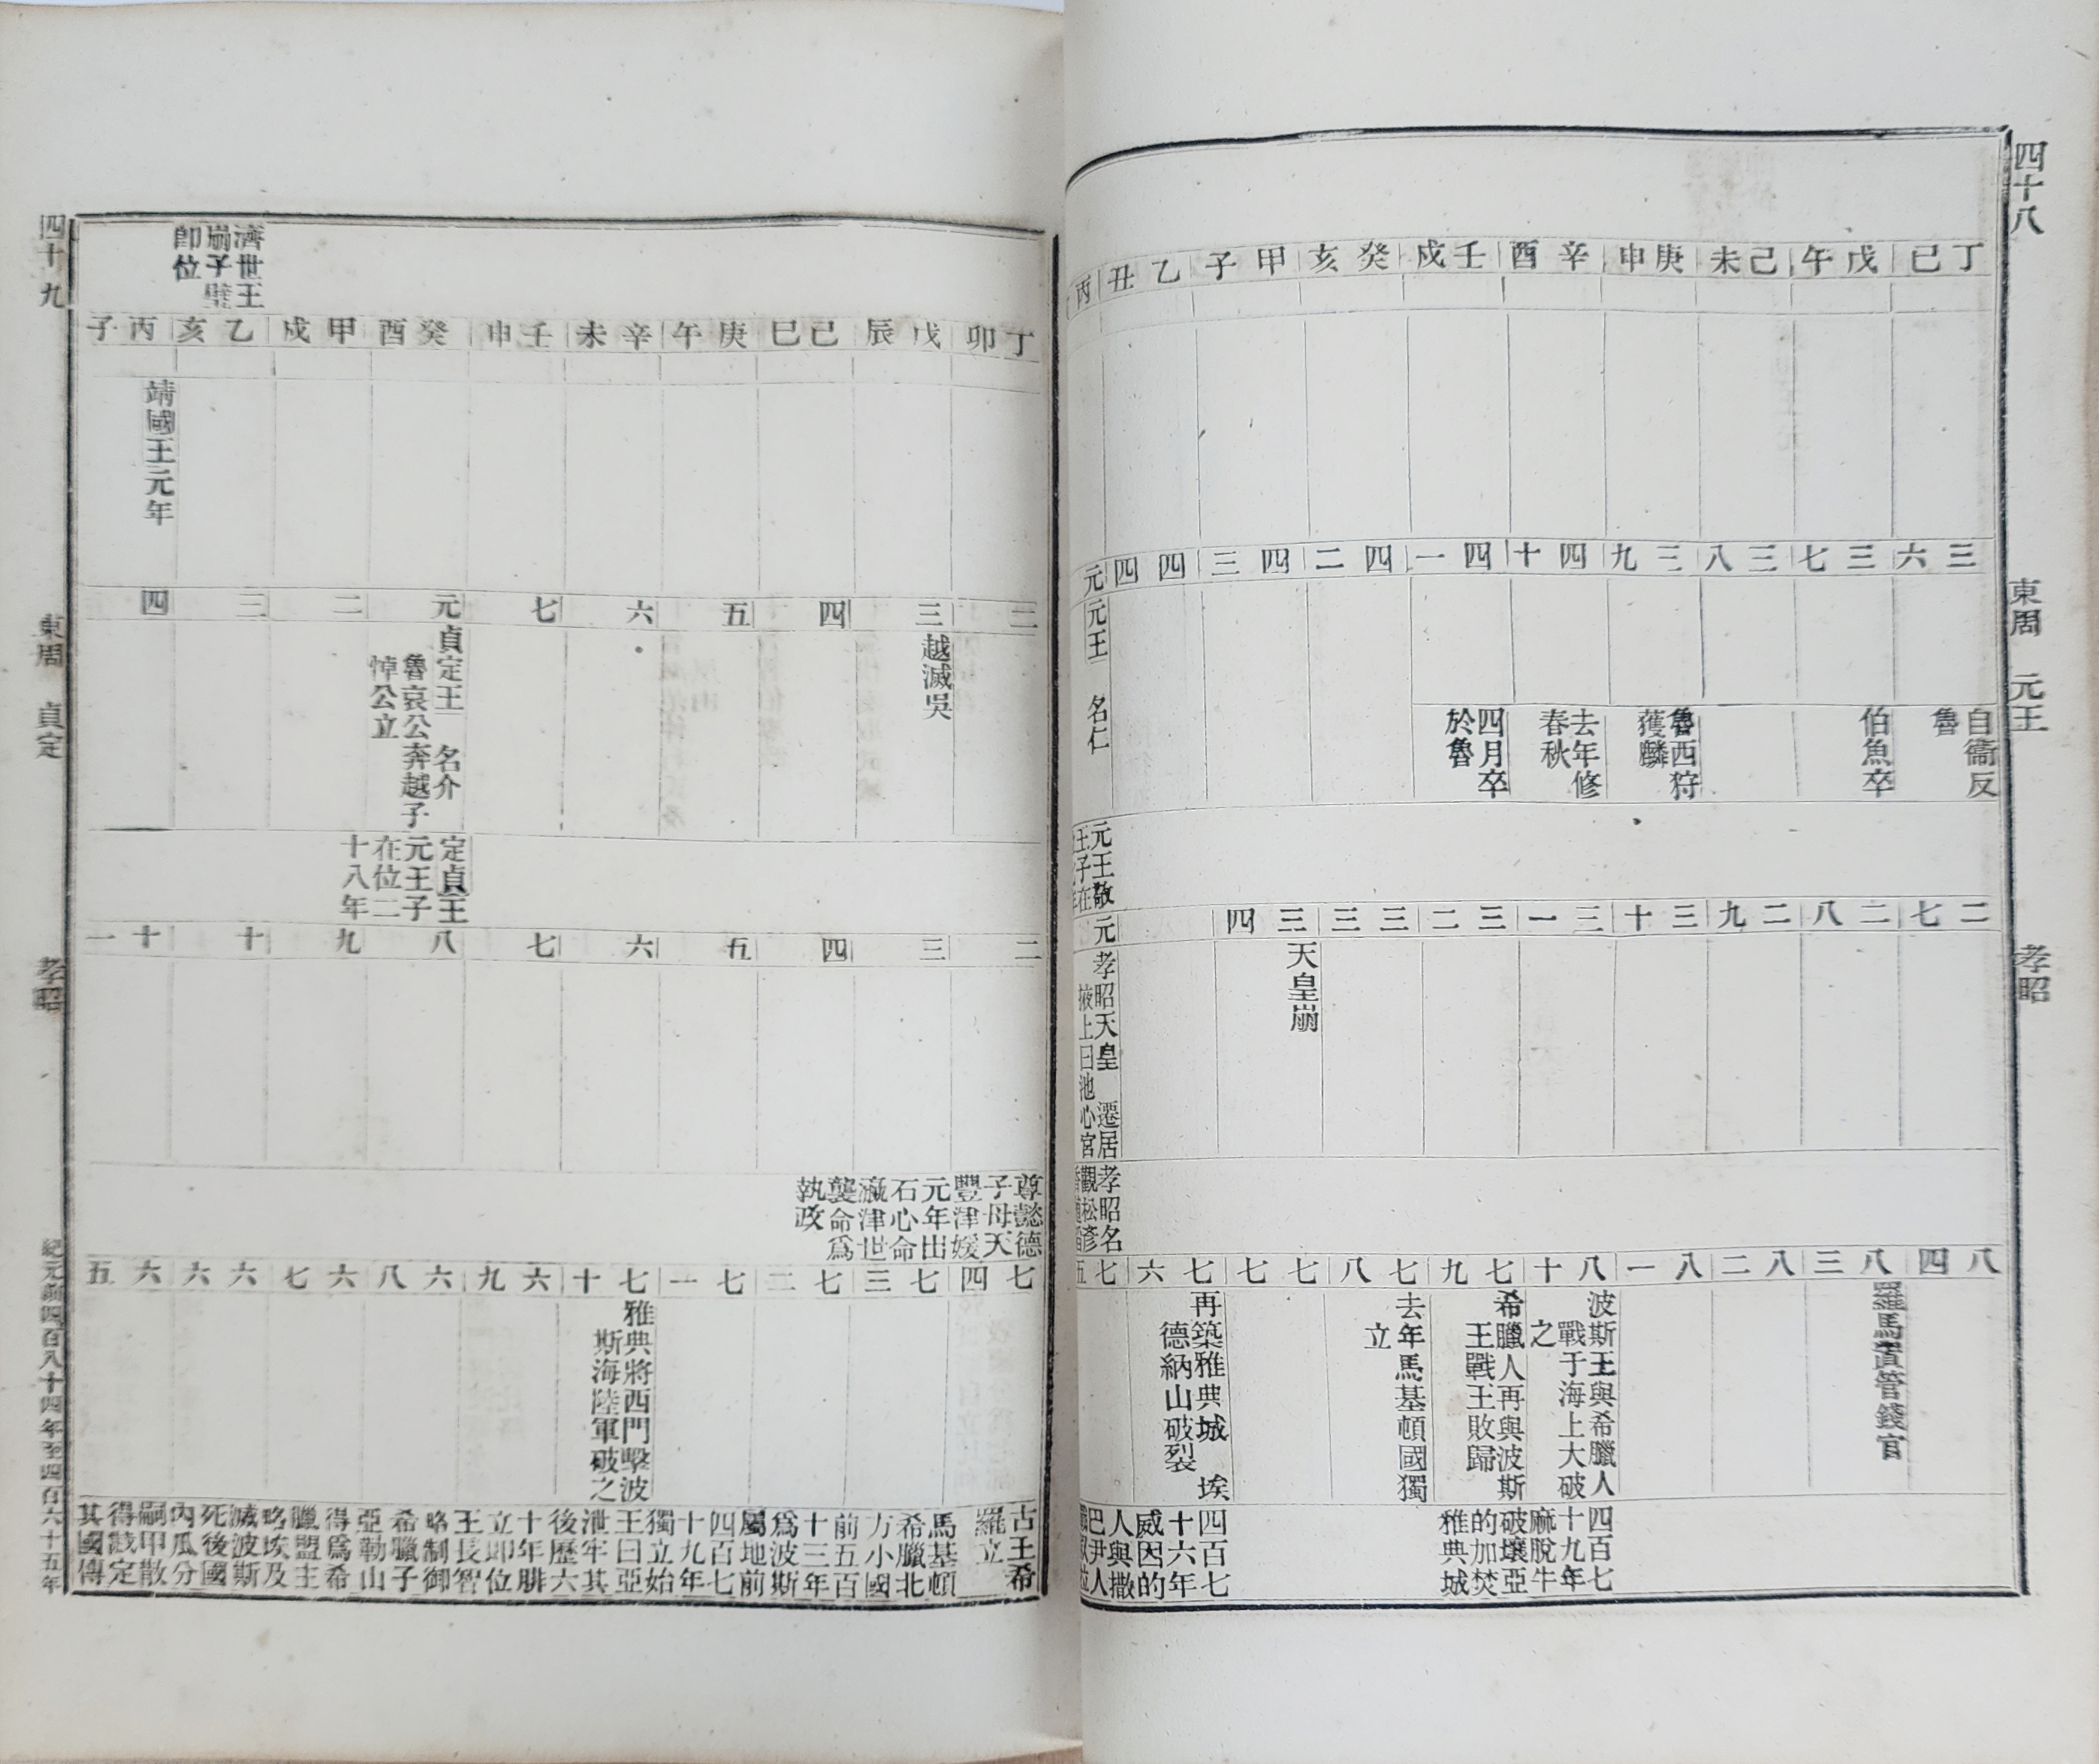 四十八
東周 元王
孝昭
丁巳
戊午
己未
庚申
辛酉
壬戌
癸亥
甲子
乙丑
丙
三六
三七
三八
三九
四十
四一
四二
四三
四四
元
元王 名仁
自衞反
魯
伯魚卒
魯西狩
獲麟
去年修
春秋
四月卒
於魯
元王敬
二七
二八
二九
三十
三一
三二
三三
三四
元
天皇崩
孝昭天皇 遷居
掖上曰池心宮
孝昭名
八四
八三
八二
八一
八十
七九
七八
七七
七六
七五
羅馬置管錢官
波斯王與希臘人
戰于海上大破
之
希臘人再與波斯
王戰王敗歸
去年馬基頓國獨
立
再築雅典城 埃
德納山破裂
四百七
十九年
麻脫牛
破壞亞
的加焚
雅典城
四百七
十六年
威因的
人與撒
巴尹人
四十九
東周 貞定
孝昭
紀元前四百八十四年至四百六十五年
濟世王
崩子璧
卽位
丁卯
戊辰
己巳
庚午
辛未
壬申
癸酉
甲戌
乙亥
丙子
靖國王元年
二
三
四
五
六
七
元
二
三
四
越滅吳
貞定王 名介
魯哀公奔越子
悼公立
定貞王
元王子
在位二
十八年
二
三
四
五
六
七
八
九
十
十一
尊懿德
子母天
豐津媛
元年出
石心命
瀛津世
襲命爲
執政
七四
七三
七二
七一
七十
六九
六八
六七
六六
六五
雅典將西門擊波
斯海陸軍破之
古王希
羅立
馬基頓
希臘北
方小國
前五百
十三年
爲波斯
屬地前
四百七
十九年
獨立始
王曰亞
泄牢其
後歷六
十年腓
立卽位
王長智
略制御
希臘子
亞勒山
得爲希
臘盟主
略埃及
滅波斯
死後國
內瓜分
嗣甲散
得戡定
其國傳